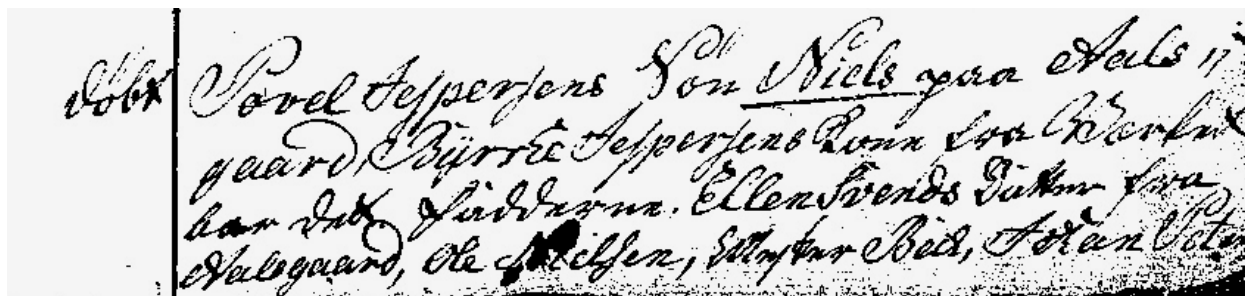 døbt Povel Jespersens Sön Niels paa Aals〃
gaard, Byrrie Jespersens Kone fra
bar det fadderne. Ellen Svends Datter fra
Aalsgaard, Ole Nielsen, Mester Beck, Johan Peter